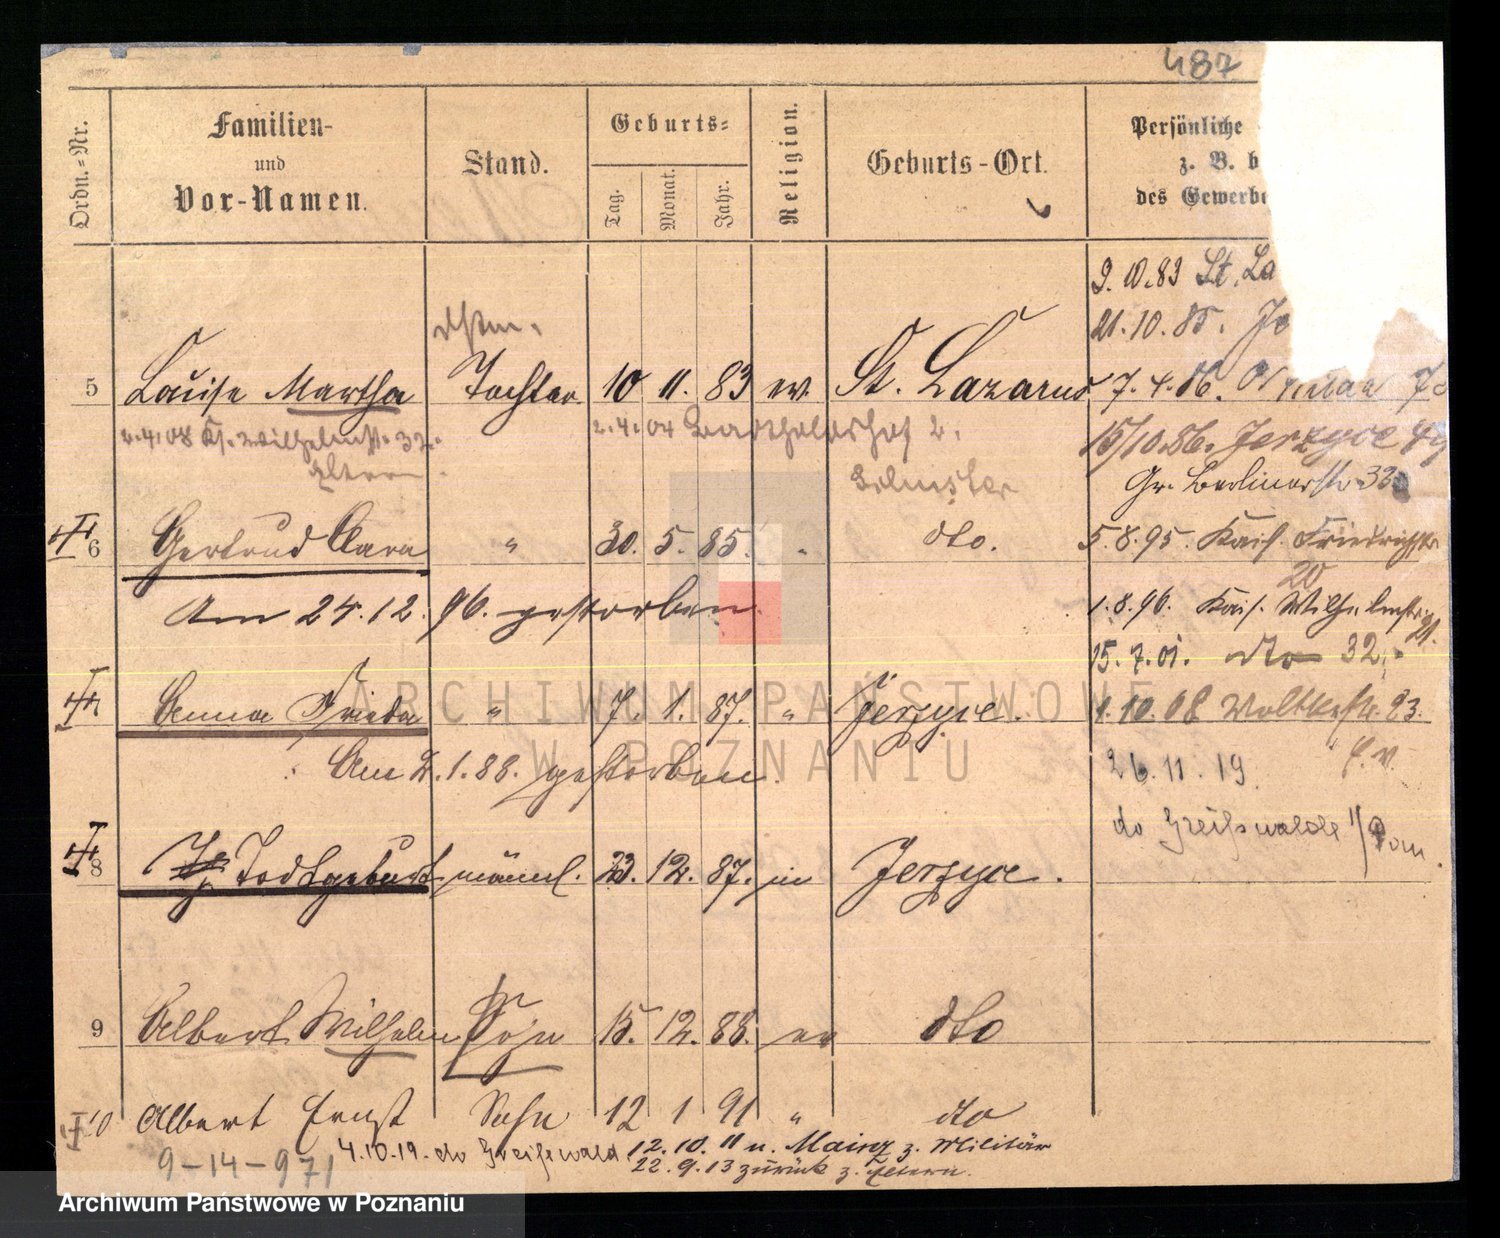 487
Ordn.-Nr.
Familien-
und
Vor-Namen.
Stand.
Geburts-
Tag.
Monat.
Jahr.
Religion.
Geburts-Ort.
Persönliche
z. B. b
des Gewerbe
9.10.83 St. La
21.10.85. Je
5 Louise Martha Tochter 10 11. 83 ev. St. Lazarus 7.4.86.
2.4.08 Ks. Wilhelmstr. 32. 2.4.04 Bartholdshof 2. 15/10.86. Jerzyce 49
Eltern Gr. Berlinerstr. 33
6 Gertrud Clara " 30. 5. 85. dto. 5.8.95. Kais. Friedrichstr.
20
Am 24.12.96. gestorben. 1.8.96. Kais. Wilhelmstr. 21.
15.7.01. dto 32.
7 Anna Frieda " 7. 1. 87. " Jerzyce. 1.10.08 Moltkestr. 23.
Am 2.1.88. gestorben. 26.11.19.
do Greifswalde i/Pom.
8 Todtgeburt männl. 23. 12. 87. Jerzyce.
9 Albert Wilhelm Sohn 15. 12. 88. ev dto
10 Albert Ernst Sohn 12 1 91 " dto
4.10.19. do Greifswald. 12.10.11 n. Mainz z. Militär
22.9.13 zurück z. Eltern.
9-14-971
ARCHIWUM PAŃSTWOWE
W POZNANIU
Archiwum Państwowe w Poznaniu